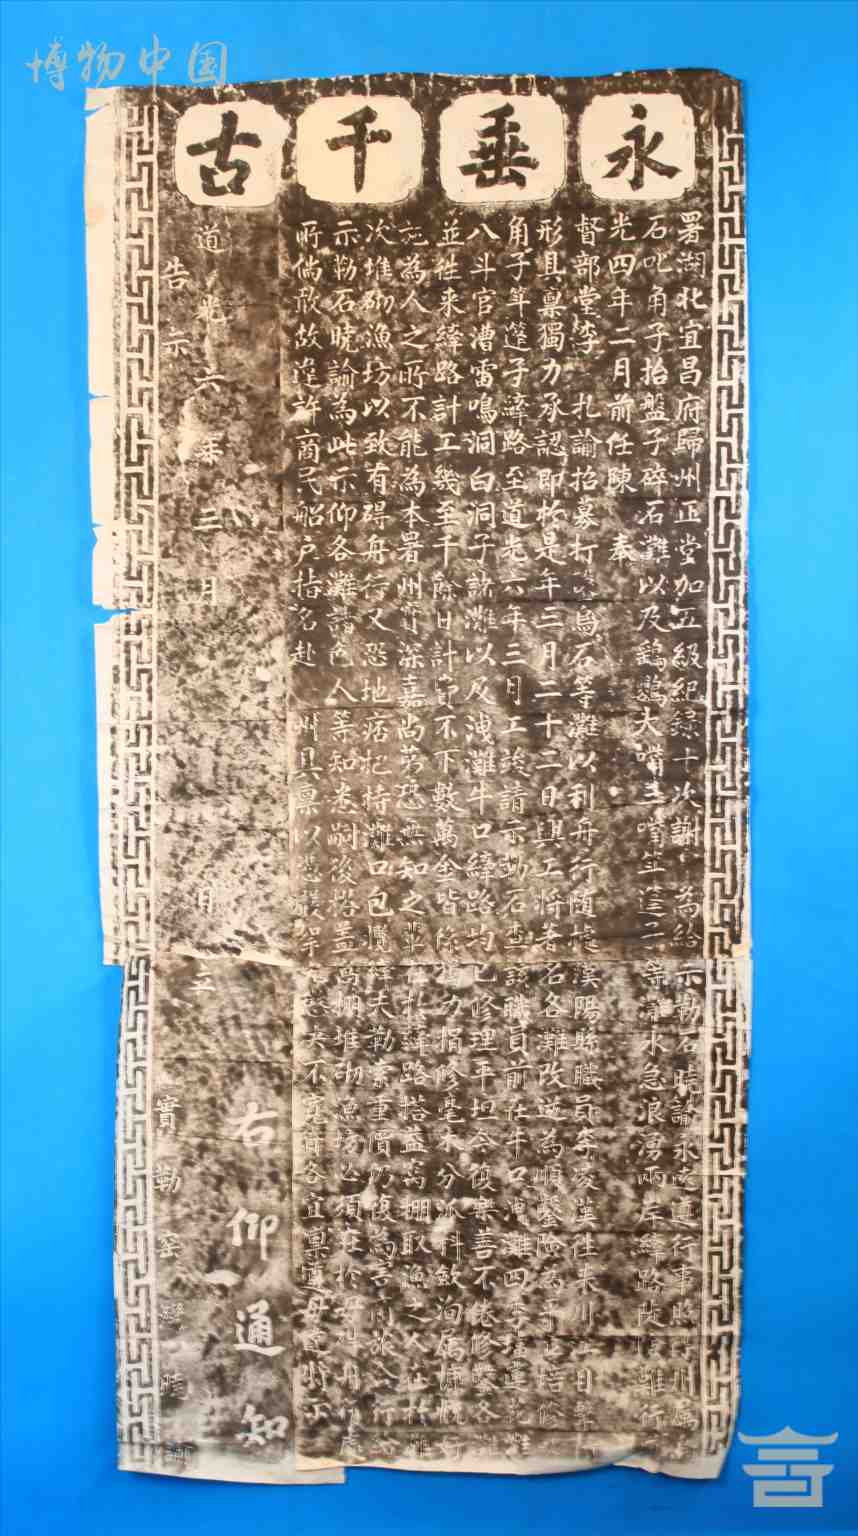 博物中国
永垂千古
署湖北宜昌府歸州正堂加五級紀錄十次謝 為給示勒石曉諭永遠遵行事照得州屬
石叱角子抬盤子碎石灘以及鷄鷀大嘴三嘴笇簉子等灘水急浪湧兩岸縴路陡 難行
光四年二月前任陳 奉
督部堂李 札諭招募打 烏石等灘以利舟行隨據漢陽縣職員李凌漢往来川江目擊情
形具稟獨力承認即於是年三月二十二日興工將著名各灘改逆為順鑿險為平並培修
角子笇簉子縴路至道光六年三月工竣請示勒石查該職員前在牛口洩灘四季 蓬 灘
八斗官漕雷鳴洞白洞子諸灘以及洩灘牛口縴路均已修理平坦今復樂善不倦修鑿各灘
並往来縴路計工幾至千餘日計費不下數萬金皆係獨力捐修毫未分派科斂洵屬慷慨好
施為人之所不能為本署州實深嘉尚第恐無知之輩在於縴路搭蓋窩棚取漁之人在於灘
次堆砌漁坊以致有碍舟行又恐地痞把持灘口包攬縴夫勒索重價仍復為害商旅合行給
示勒石曉諭為此示仰各灘諸色人等知悉嗣後搭蓋窩棚堆砌漁坊必須在於毋碍舟行處
所倘敢故違許商民船户指名赴 州具稟以憑嚴 究 决不寬貸各宜稟遵毋違特示
右仰通知
道光六年三月 日立
告示
實勒 曉諭